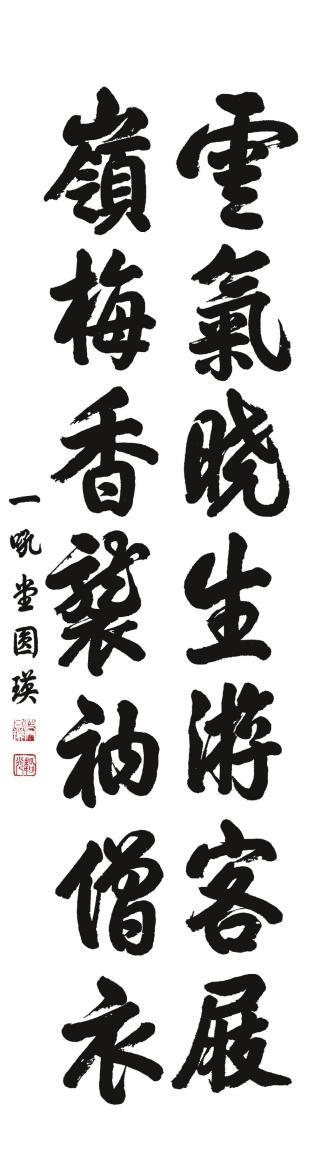 雲氣晓生游客屐
嶺梅香襲衲僧衣
一吼堂圆瑛